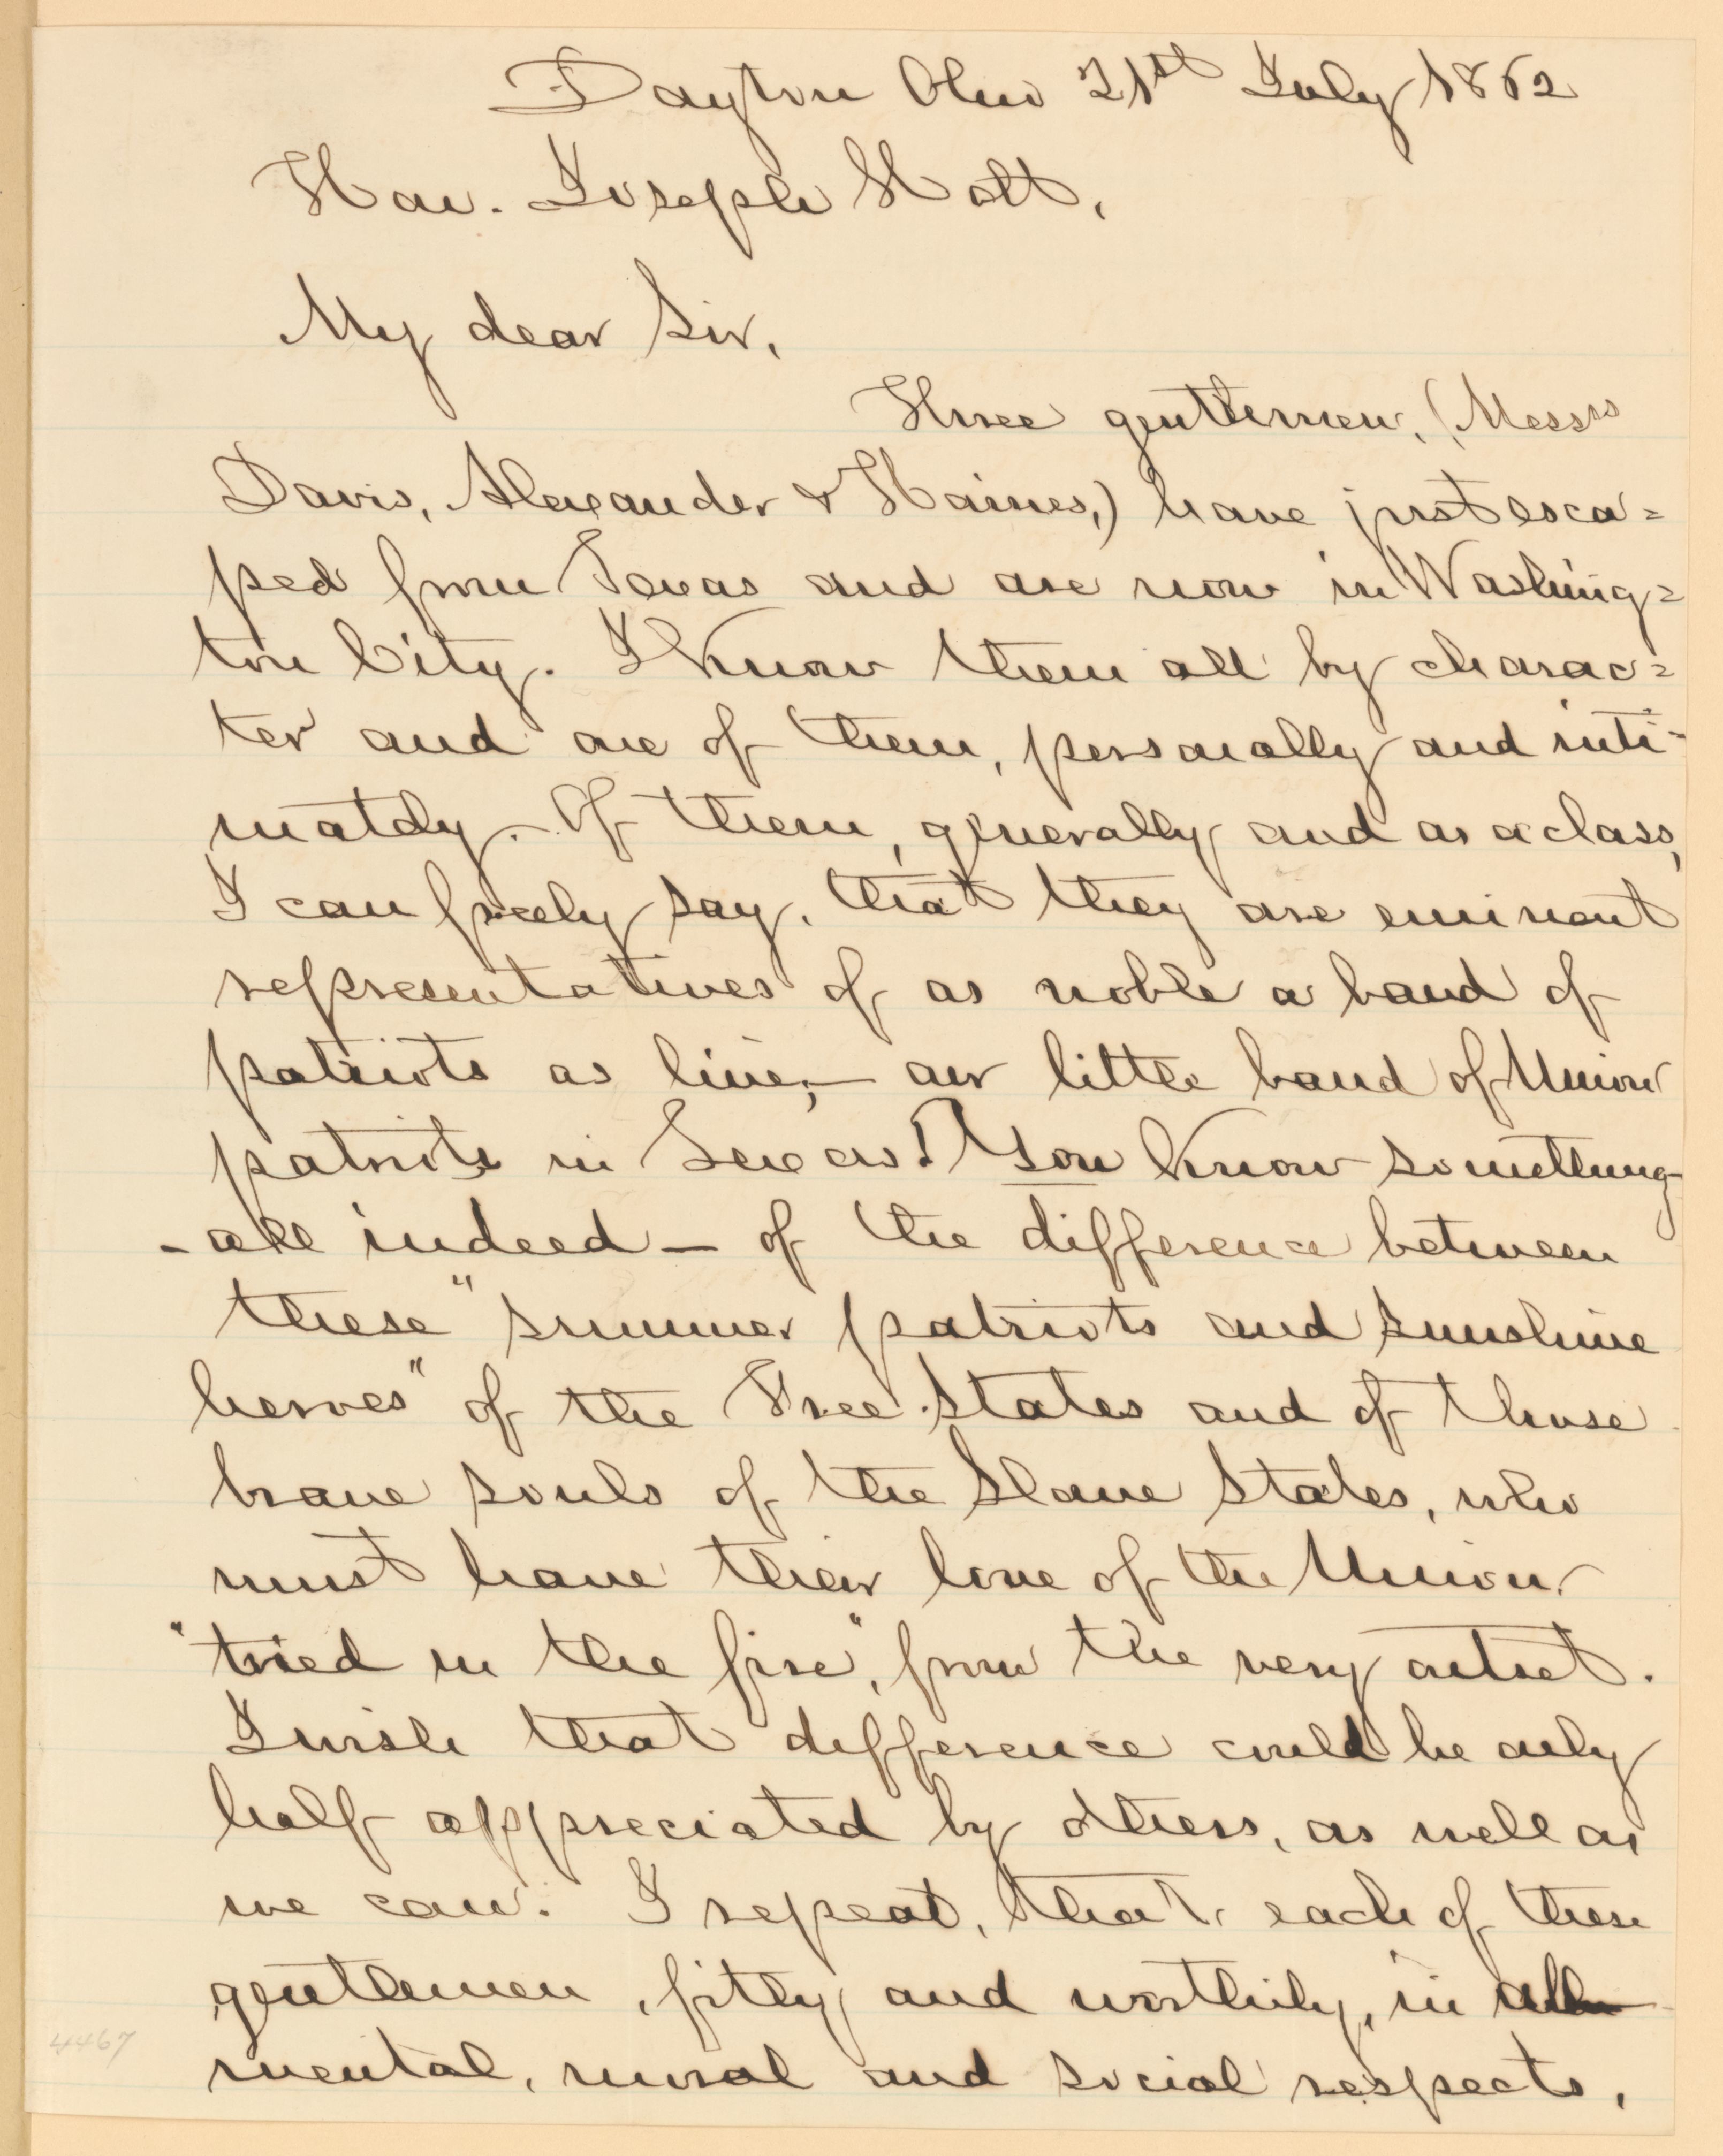 Dayton Ohio 21st July 1862
Hon. Joseph Holt,
My dear Sir,
Three gentlemen, (Messrs
Davis, Alexander & Haines,) have just esca=
ped from Texas and are now in Washing=
ton City. I know them all by charac=
ter and one of them, personally and inti=
mately. Of them, generally and as a class,
I can freely say, that they are eminent
representatives of as noble a band of
patriots as live;— our little band of Union
patriots in Texas! You know something
- all indeed - of the difference between
these "summer patriots and sunshine
heroes" of the Free States and of those
brave souls of the Slave States, who
must have their love of the Union
"tried in the fire", from the very outset.
I wish that difference could be only
half appreciated by others, as well as
we can. I repeat, that, each of these
gentlemen, fitly and worthily, in all
mental, moral and social respects,
4467